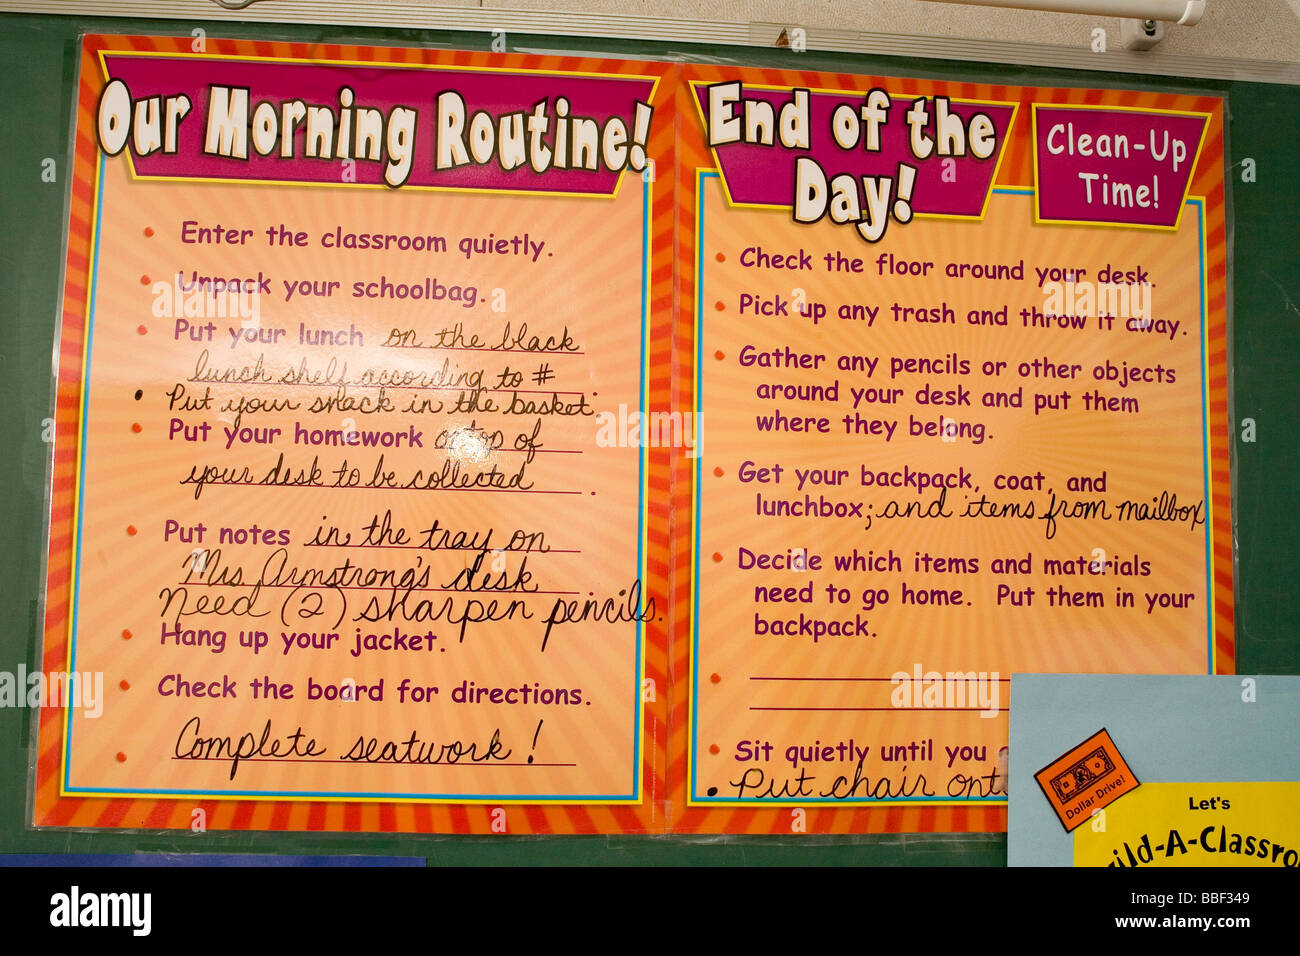 Our Morning Routine!
• Enter the classroom quietly.
• Unpack your schoolbag.
• Put your lunch on the black
lunch shelf according to # .
• Put your snack in the basket.
• Put your homework on top of
your desk to be collected .
• Put notes in the tray on
Mrs. Armstrong's desk
Need (2) sharpen pencils.
• Hang up your jacket.
• Check the board for directions.
• Complete seatwork!
End of the
Day!
Clean-Up
Time!
• Check the floor around your desk.
• Pick up any trash and throw it away.
• Gather any pencils or other objects
around your desk and put them
where they belong.
• Get your backpack, coat, and
lunchbox; and items from mailbox
• Decide which items and materials
need to go home. Put them in your
backpack.
• Sit quietly until you
• Put chair
Dollar Drive!
Let's
ild-A-Classro
alamy
Image ID: BBF349
www.alamy.com